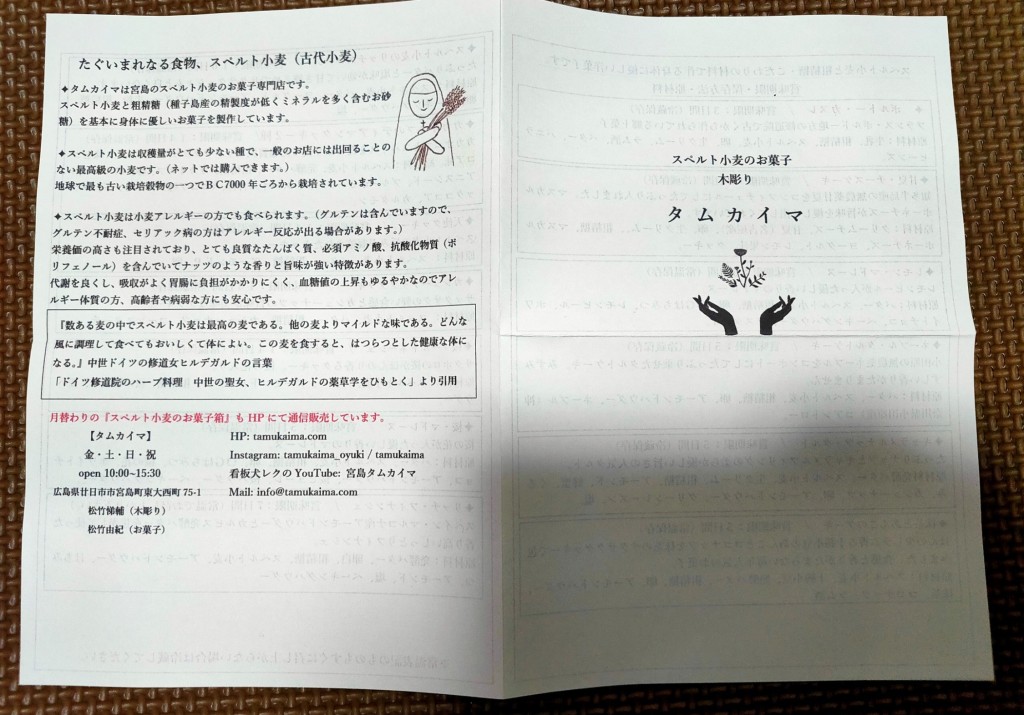 たぐいまれなる食物、スペルト小麦（古代小麦）
✦タムカイマは宮島のスペルト小麦のお菓子専門店です。
スペルト小麦と粗精糖（種子島産の精製度が低くミネラルを多く含むお砂
糖）を基本に身体に優しいお菓子を製作しています。
✦スペルト小麦は収穫量がとても少ない種で、一般のお店には出回ることの
ない最高級の小麦です。（ネットでは購入できます。）
地球で最も古い栽培穀物の一つでＢＣ7000年ごろから栽培されています。
✦スペルト小麦は小麦アレルギーの方でも食べられます。（グルテンは含んでいますので、
グルテン不耐症、セリアック病の方はアレルギー反応が出る場合があります。）
栄養価の高さも注目されており、とても良質なたんぱく質、必須アミノ酸、抗酸化物質（ポ
リフェノール）を含んでいてナッツのような香りと旨味が強い特徴があります。
代謝を良くし、吸収がよく胃腸に負担がかかりにくく、血糖値の上昇もゆるやかなのでアレ
ルギー体質の方、高齢者や病弱な方にも安心です。
『数ある麦の中でスペルト小麦は最高の麦である。他の麦よりマイルドな味である。どんな
風に調理して食べてもおいしくて体によい。この麦を食すると、はつらつとした健康な体に
なる。』中世ドイツの修道女ヒルデガルドの言葉
「ドイツ修道院のハーブ料理　中世の聖女、ヒルデガルドの薬草学をひもとく」より引用
月替わりの『スペルト小麦のお菓子箱』もHPにて通信販売しています。
【タムカイマ】
金・土・日・祝
open 10:00~15:30
広島県廿日市市宮島町東大西町75-1
松竹悌輔（木彫り）
松竹由紀（お菓子）
HP: tamukaima.com
Instagram: tamukaima_oyuki / tamukaima
看板犬レクのYouTube: 宮島タムカイマ
Mail: info@tamukaima.com
スペルト小麦のお菓子
木彫り
タムカイマ